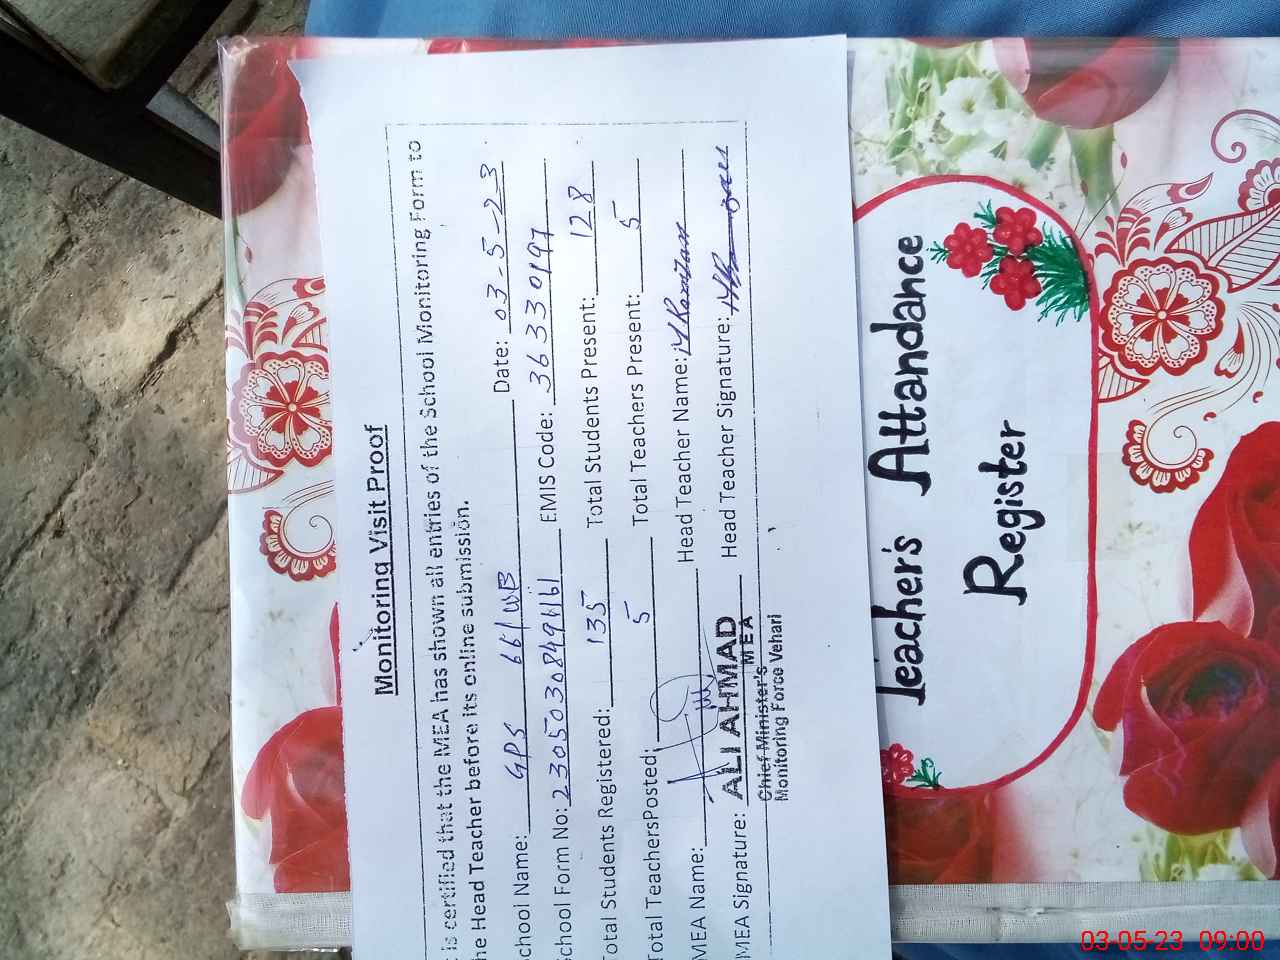 Monitoring Visit Proof
is certified that the MEA has shown all entries of the School Monitoring Form to
he Head Teacher before its online submission.
chool Name: GPS 661 WB Date: 03-5-23
chool Form No: EMIS Code: 36330197
otal Students Registered: 135 Total Students Present: 128
otal TeachersPosted: 5 Total Teachers Present: 5
MEA Name: Head Teacher Name: M Ramzan
MEA Signature: Head Teacher Signature:
ALI AHMAD
MEA
Chief Minister's
Monitoring Force Vehari
Teacher's Attandance
Register
03-05-23 09:00